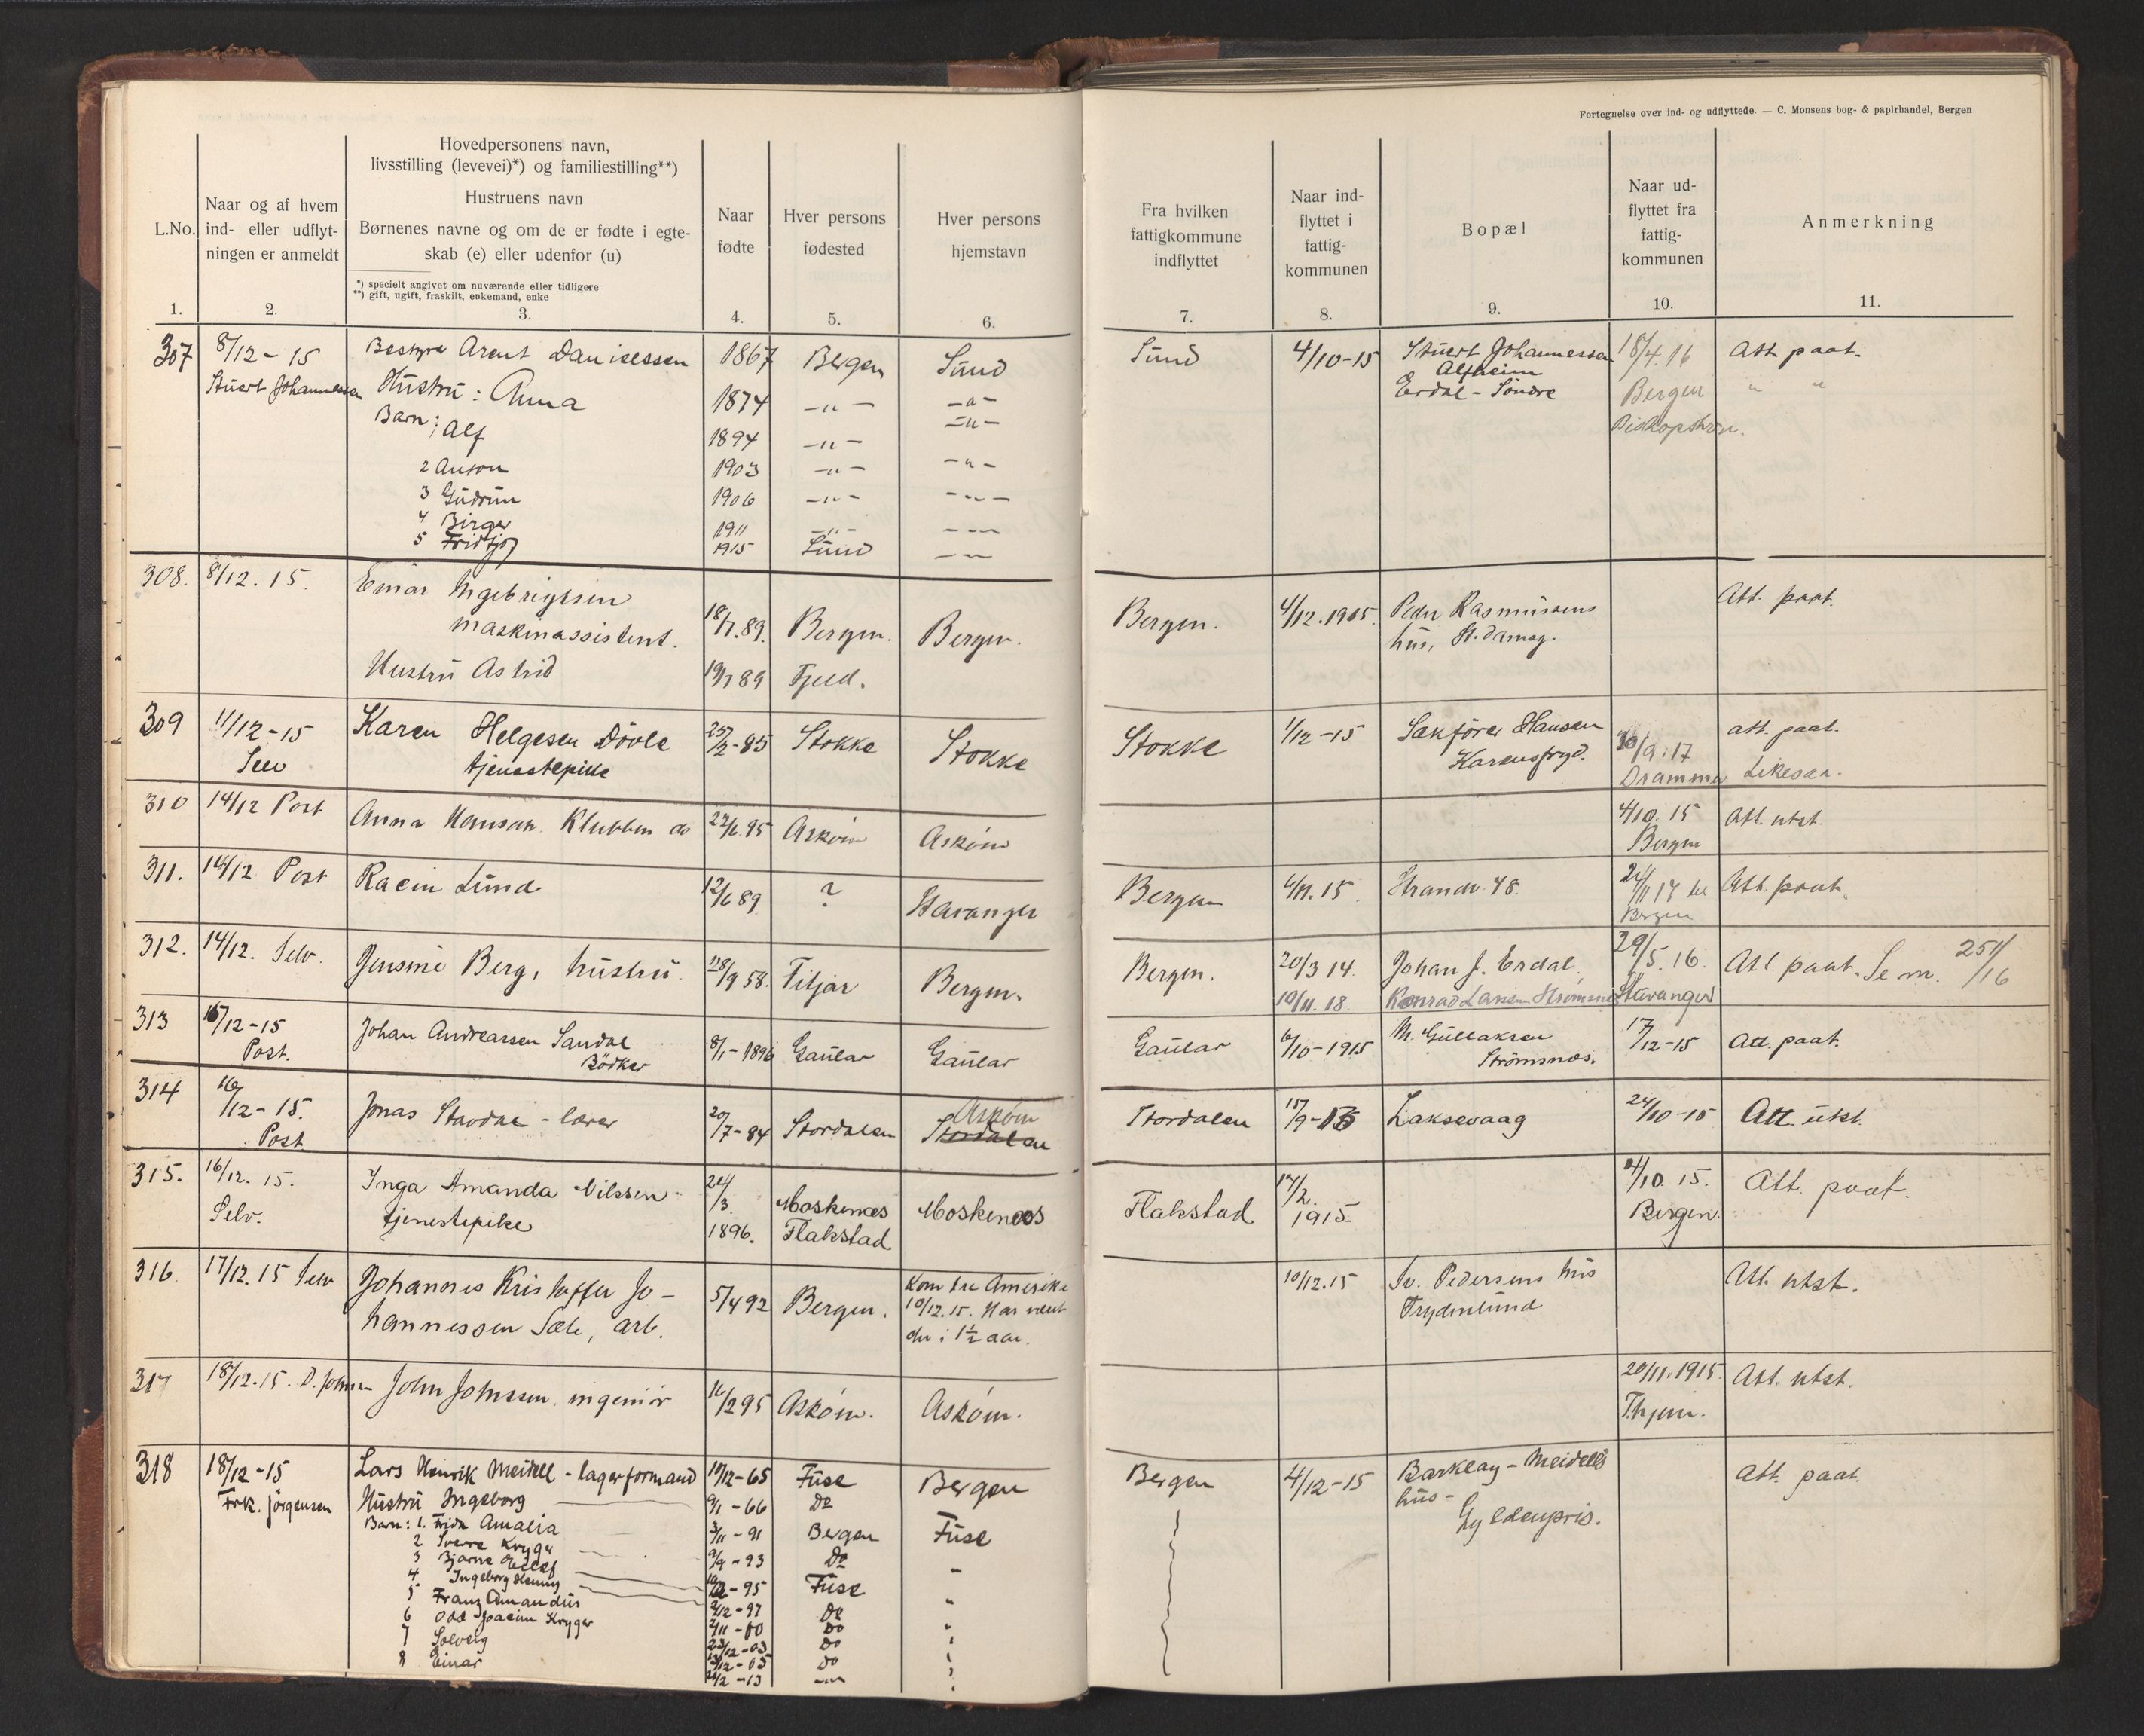 Fortegnelse over ind- og udflyttede. — C. Monsens bog- & papirhandel, Bergen
L.No.
1.
Naar og af hvem
ind- eller udflyt-
ningen er anmeldt
2.
Hovedpersonens navn,
livsstilling (levevei)*) og familiestilling**)
Hustruens navn
Børnenes navne og om de er fødte i egte-
skab (e) eller udenfor (u)
*) specielt angivet om nuværende eller tidligere
**) gift, ugift, fraskilt, enkemand, enke
3.
Naar
fødte
4.
Hver persons
fødested
5.
Hver persons
hjemstavn
6.
Fra hvilken
fattigkommune
indflyttet
7.
Naar ind-
flyttet i
fattig-
kommunen
8.
Bopæl
9.
Naar ud-
flyttet fra
fattig-
kommunen
10.
Anmerkning
11.
307 8/12-15 Arent Danielssen 1867 Bergen Sund Sund 4/10-15 Stuert Johannessen 18/4.16 Att paat.
Stuert Johannessen Hustru: Anna 1874 -"- -"- Alfheim Bergen " "
Erdal - Söndre
Barn: 1 Alf 1894 -"- -"-
2 Anton 1903 -"- -"-
3 Gudrun 1906 -"- -"-
4 Birger 1911 -"- -"-
5 Fridtjof 1915 Sund -"-
308. 8/12.15. Einar Ingebrigtsen Bergen. 4/12.1915. Peder Rasmussens Att. paat.
maskinassistent. 18/7.89. Bergen. Bergen. hus, St. damsg.
Hustru Astrid 19/7 89 Fjeld.
309 11/12-15 Karen Helgesen Dövle 25/2-85 Stokke Stokke Stokke 1/12-15 Sakförer Hansen 30/9.17 att. paat.
Selv tjenestepike Karensfryd. Drammen
310 14/12 Post Anna Hansen Klubben do 22/6 95 Asköin Asköin 4/10.15 Att. utst.
Bergen
311. 14/12 Post Lund 12/6 89 ? Stavanger Bergen 4/11.15 Strandv. 48. Att. paat.
Bergen
312. 14/12. Selv. Jensine Berg, hustru. 28/9 58. Fitjar Bergen. Bergen. 20/3 14. Johan J. Erdal. 29/5.16. Att. paat. Se m. 251/16
19/11.18. Konrad Larsen Stavanger
313 15/12-15 Johan Andreassen Sandal 8/1-1896 Gaular Gaular Gaular 6/10-1915 M. Gullaksen 17/12-15 Att. paat.
Post. Bödker Strömsnes.
314 16/12-15. Jonas Stavdal - lærer 20/7-84 Stordalen Asköin Stordalen Stordalen 15/9-15 Laksevaag 24/10-15 Att. utst.
Post
315. 16/12.15. Inga Amanda Nilssen 24/3. Moskenes Moskenæs Flakstad 17/2. 1915. 4/10.15. Att. paat.
Selv. tjenestepike 1896. Flakstad Bergen.
316. 17/12.15 Selv Johannes Kristoffer Jo- 5/4 92 Bergen. Kom fra Amerika 10/12.15 Sv. Pedersens hus Att. utst.
hannessen Sæle, arb. 10/12.15. Har været Frydenlund
der i 1½ aar.
317 18/12.15. D. Johnsen John Johnssen, ingeniör 16/2 95 Asköin. Asköin. 20/11.1915. Att. utst.
Thjem.
318 18/12-15 Lars Henrik Meidell - lagerformand 10/12-65 Fuse Bergen Bergen 4/12-15 Barklay - Meidells Att. paat.
Frk. Jörgensen Hustru Ingeborg 9/1-66 Do hus -
Gyldenpris.
Barn: 1. Frida Amalia 3/11-91 Bergen Fuse
2 Sverre Kryger 9/9-93 Do "
3 Bjarne
4 Ingeborg Henny -95 Fuse
5 Franz Amandus 2/12-97 Do "
6 Odd Joacim Kryger 2/11-00 Do "
7 Solveig 23/12-03 Do
8 Einar 12-05 Do
2-13 -"-